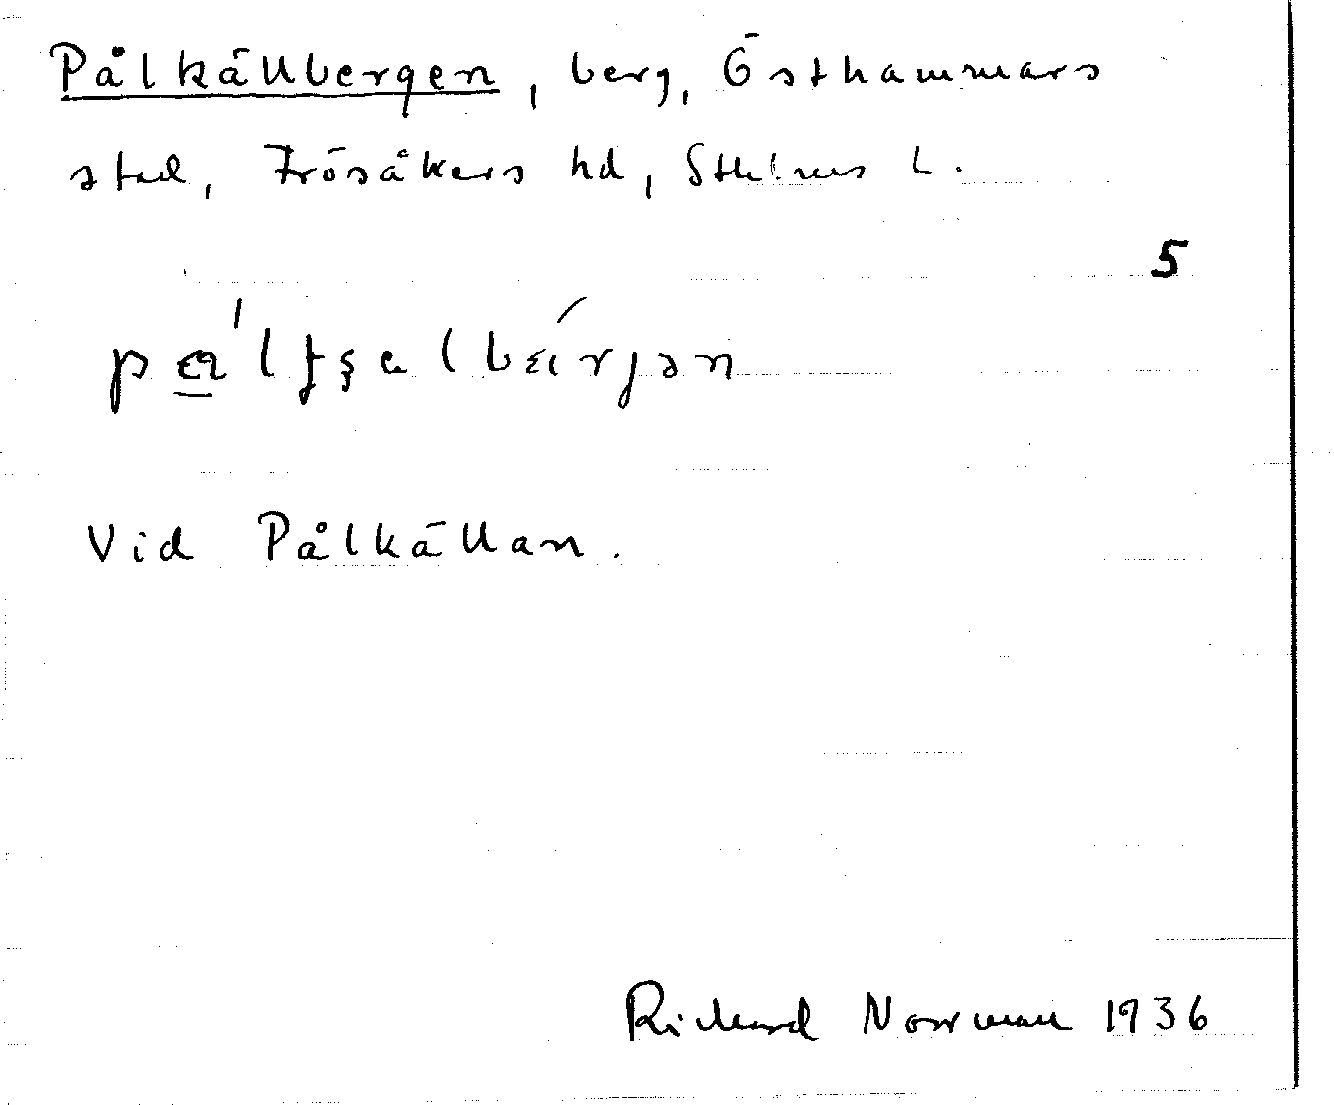 Pålkällbergen, berg, Östhammars
stad, Frösåkers hd, Sthlms L.
5
Vid Pålkällan.
Richard Norrman 1936